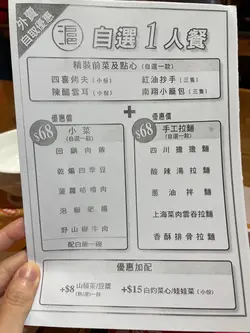 外賣
自取優惠
自選1人餐
精裝前菜及點心（自選一款）
四喜烤夫（小份）
紅油抄手（三隻）
陳醋雲耳（小份）
南翔小籠包（三隻）
+
優惠價
$68
小菜
（自選一款）
回鍋肉飯
乾煸四季豆
菠蘿咕嚕肉
泡椒肥腸
野山椒牛肉
配白飯一碗
優惠價
$68
手工拉麵
（自選一款）
四川擔擔麵
酸辣湯拉麵
蔥油拌麵
上海菜肉雲吞拉麵
香酥排骨拉麵
優惠加配
+$8山楂茶/豆漿
（熱/凍）一杯
+$15白灼菜心/娃娃菜（小份）